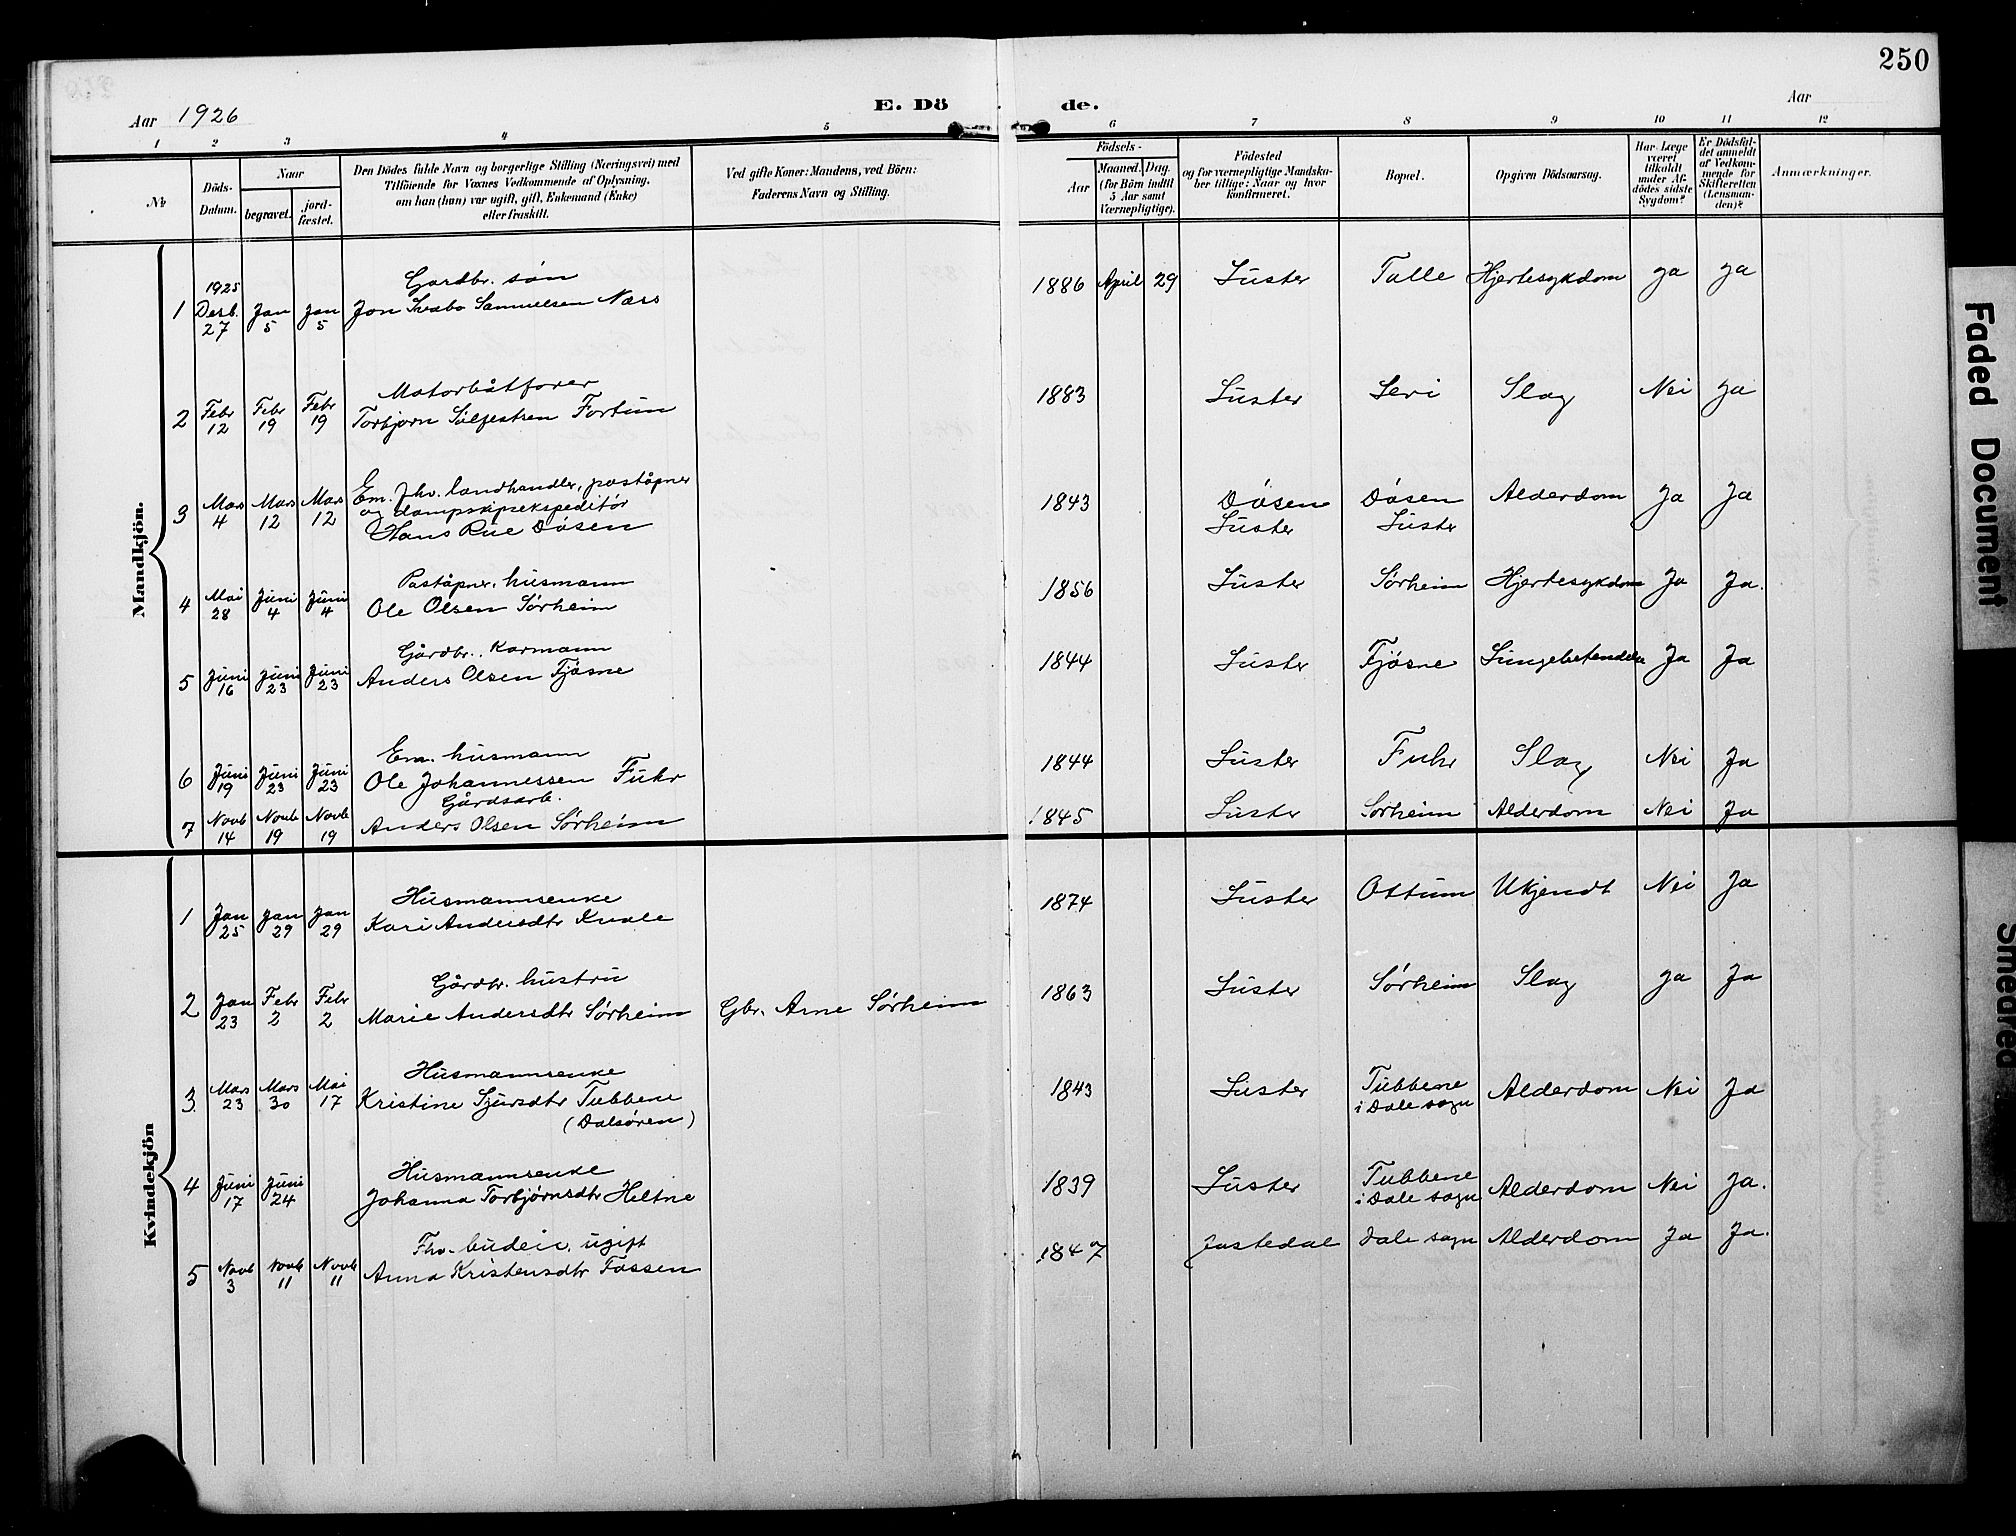 250
Aar 1926
E. Dö de.
Aar
1 2 3 4 5 6 7 8 9 10 11 12
№
Döds-Datum.
Naar
begravet.
jord-fæstet.
Den Dödes fulde Navn og borgerlige Stilling (Næringsvei) med
Tilföiende for Voxnes Vedkommende af Oplysning,
om han (hun) var ugift, gift, Enkemand (Enke)
eller fraskilt.
Ved gifte Koner: Mandens, ved Börn:
Faderens Navn og Stilling.
Födsels-
Aar
Maaned. Dag.
(for Börn indtil
5 Aar samt
Værnepligtige).
Födested
og for værnepligtige Mandska-
ber tillige: Naar og hvor
konfirmeret.
Bopæl.
Opgiven Dödsaarsag.
Har Læge
været
tilkaldt
under Af-
dödes sidste
Sygdom?
Er Dödsfal-
det anmeldt
af Vedkom-
mende for
Skifteretten
(Lensman-
den)?
Anmærkninger.
Mandkjön.
Gardbr. søn
1 1925 Desb. 27 Jan 5 Jan 5 Jon Samuelsen Næss 1886 April 29 Luster Talle Hjertesykdom ja ja
Motorbåtfører
2 Febr 12 Febr 19 Febr 19 Torbjørn Sylfestsen Fortun 1883 Luster Leri Slag Nei ja
Em. fhv. landhandler, poståpner
og dampskipsekspeditør
3 Mars 4 Mars 12 Mars 12 Hans Rue Døsen 1843 Døsen Luster Døsen Luster Alderdom Ja Ja
Poståpner, husmann
4 Mai 28 Juni 4 Juni 4 Ole Olsen Sørheim 1856 Luster Sørheim Hjertesykdom Ja Ja.
Gårdbr. Kormann
5 Juni 16 Juni 23 Juni 23 Anders Olsen Fjøsne 1844 Luster Fjøsne Lungebetendelse Ja Ja
Em. husmann
6 Juni 19 Juni 23 Juni 23 Ole Johannessen Fuhr 1844 Luster Fuhr Slag Nei Ja
Gårdsarb.
7 Novb 14 Novb 19 Novb 19 Anders Olsen Sørheim 1845 Luster Sørheim Alderdom Nei Ja
Kvindekjön
Husmannsenke
1 Jan 25 Jan 29 Jan 29 Kari Andersdtr Kvale 1874 Luster Ottum Ukjendt Nei Ja
Gårdbr. hustru
2 Jan 23 Febr 2 Febr 2 Marie Andersdtr Sørheim Gbr. Arne Sørheim 1863 Luster Sørheim Slag ja Ja
Husmannsenke
3. Mars 23 Mars 30 Mai 17 Kristine Sjursdtr Tubbene (Dalsøren) 1843 Luster Tubbene i Dale sogn Alderdom Nei Ja
Husmannsenke
4 Juni 17 Juni 24 Johanna Torbjørnsdtr Heltne 1839 Luster Tubbene i Dale sogn Alderdom Nei Ja.
Fhv. budeie, ugift
5 Novb 3 Novb 11 Novb 11 Anna Kristensdtr Fossen 1847 Jostedal Dale sogn Alderdom Ja Ja.
Faded Document
Smeared